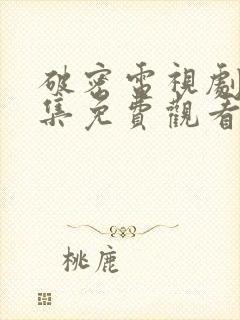 破密電視劇
集免費觀看
桃鹿